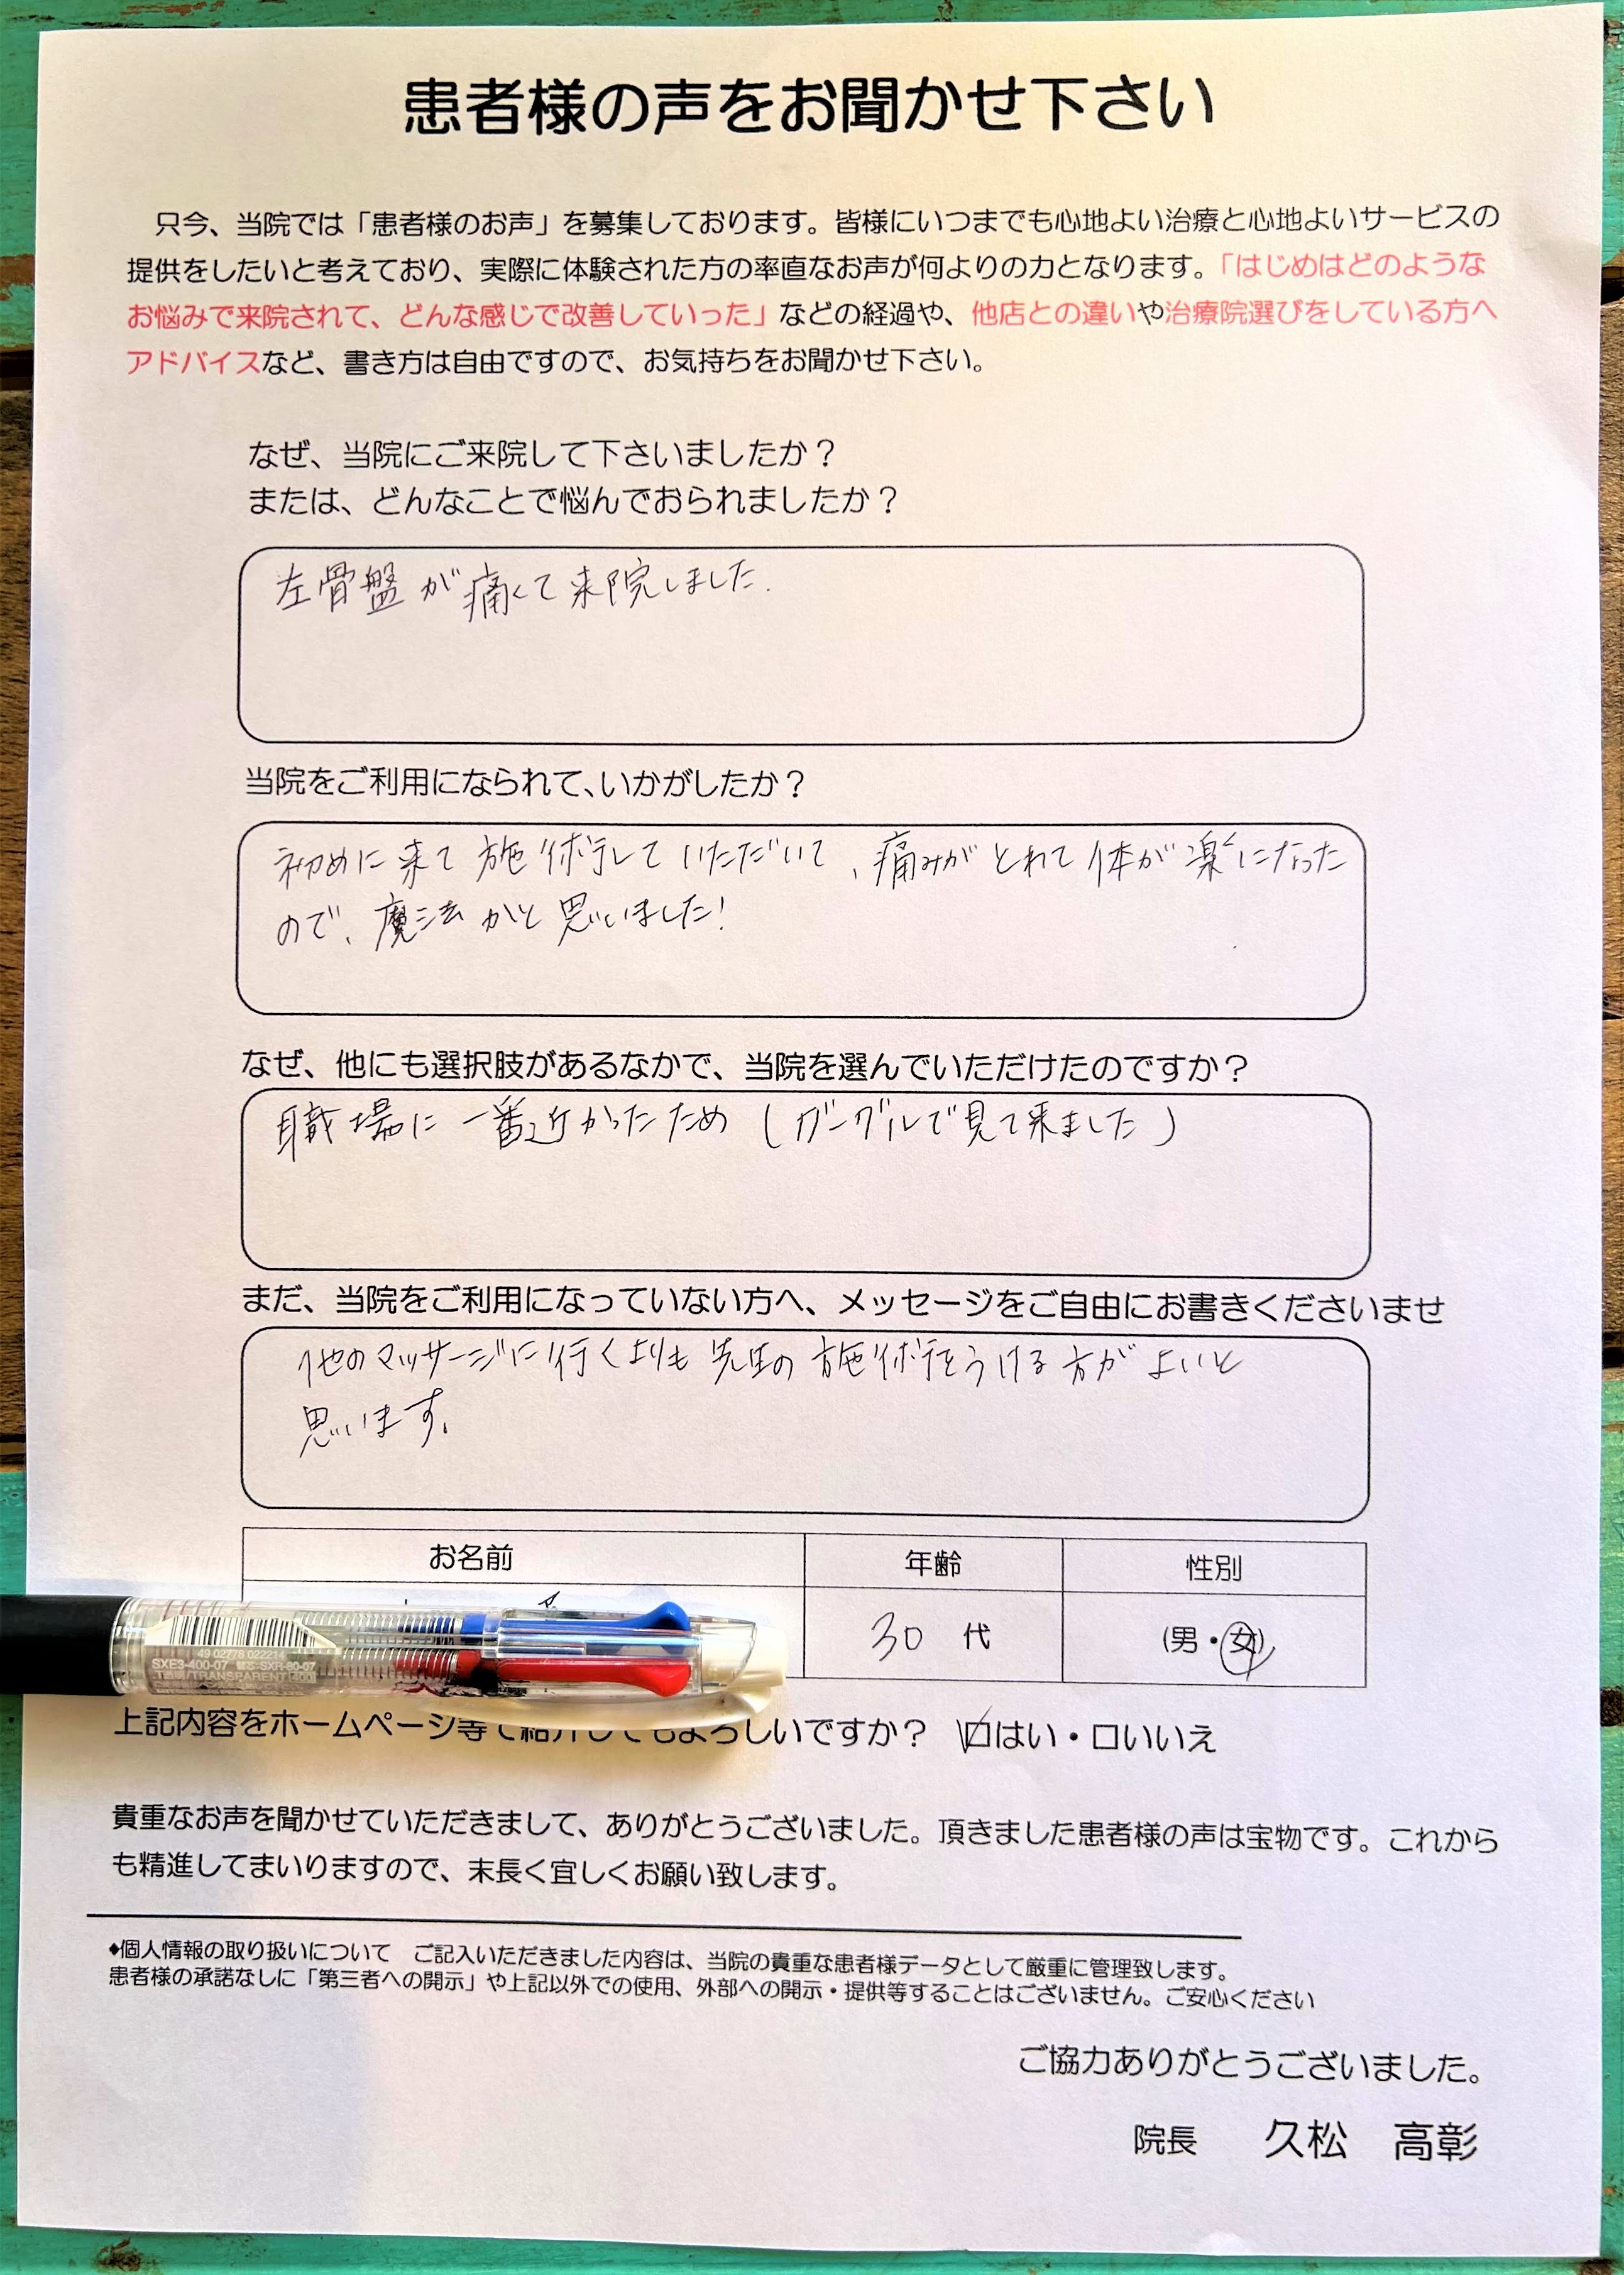 患者様の声をお聞かせ下さい
只今、当院では「患者様のお声」を募集しております。皆様にいつまでも心地よい治療と心地よいサービスの
提供をしたいと考えており、実際に体験された方の率直なお声が何よりの力となります。「はじめはどのような
お悩みで来院されて、どんな感じで改善していった」などの経過や、他店との違いや治療院選びをしている方へ
アドバイスなど、書き方は自由ですので、お気持ちをお聞かせ下さい。
なぜ、当院にご来院して下さいましたか？
または、どんなことで悩んでおられましたか？
左骨盤が痛くて来院しました.
当院をご利用になられて、いかがしたか？
初めに来て施術していただいて、痛みがとれて体が楽になった
ので、魔法かと思いました!
なぜ、他にも選択肢があるなかで、当院を選んでいただけたのですか？
職場に一番近かったため(グーグルで見て来ました)
まだ、当院をご利用になっていない方へ、メッセージをご自由にお書きくださいませ
他のマッサージに行くよりも先生の施術をうける方がよいと
思います。
お名前 年齢 性別
30 代 (男・女)
49 02778 022214
SXE3-400-07
上記内容をホームページ等で紹介してもよろしいですか？ 口はい・口いいえ
貴重なお声を聞かせていただきまして、ありがとうございました。頂きました患者様の声は宝物です。これから
も精進してまいりますので、末長く宜しくお願い致します。
◆個人情報の取り扱いについて ご記入いただきました内容は、当院の貴重な患者様データとして厳重に管理致します。
患者様の承諾なしに「第三者への開示」や上記以外での使用、外部への開示・提供等することはございません。ご安心ください
ご協力ありがとうございました。
院長 久松 高彰